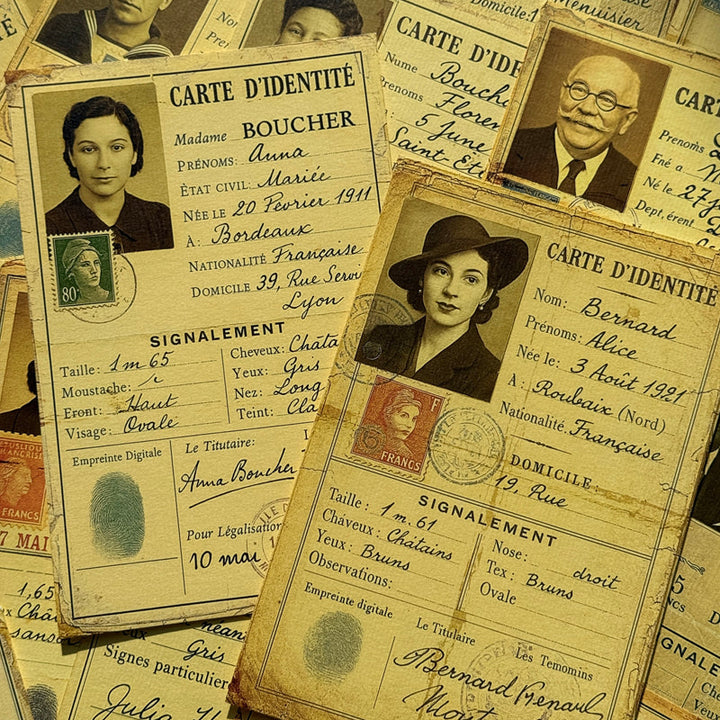 Domicile:
Menuisier
CARTE D'IDENTITÉ
Madame BOUCHER
PRÉNOMS: Anna
ÈTAT CIVIL: Mariée
NÉE LE 20 Février 1911
À: Bordeaux
NATIONALITÉ Française
DOMICILE 39, Rue Serv
Lyon
SIGNALEMENT
Taille: 1m 65
Moustache:
Eront: Haut
Visage: Ovale
Cheveux: Châta
Yeux: Gris
Nez: Long
Teint: Cla
Empreinte Digitale
Le Titutaire:
Anna Boucher
Pour Légalisatio
10 mai
80
CARTE D'IDENTITÉ
Nom: Bernard
Prénoms: Alice
Née le: 3 Août 1921
À: Roubaix (Nord)
Nationalité. Française
DOMICILE:
19, Rue
F
FRANCS
SIGNALEMENT
Taille: 1 m. 61
Chàveux: Châtains
Yeux: Bruns
Observations:
Nose: droit
Tex: Bruns
Ovale
Empreinte digitale
Le Titulaire
Les Temomins
Bernard Renard
CARTE D'IDEN
Nume Bouch
Prenoms Floren
5 June
Saint-Ete
CART
Prenoms
Fné a
Né le 27
Dept, érent
FRANCS
7 MAI
1,65
Gris
Signes particulier
Julia
5
SIGNALE